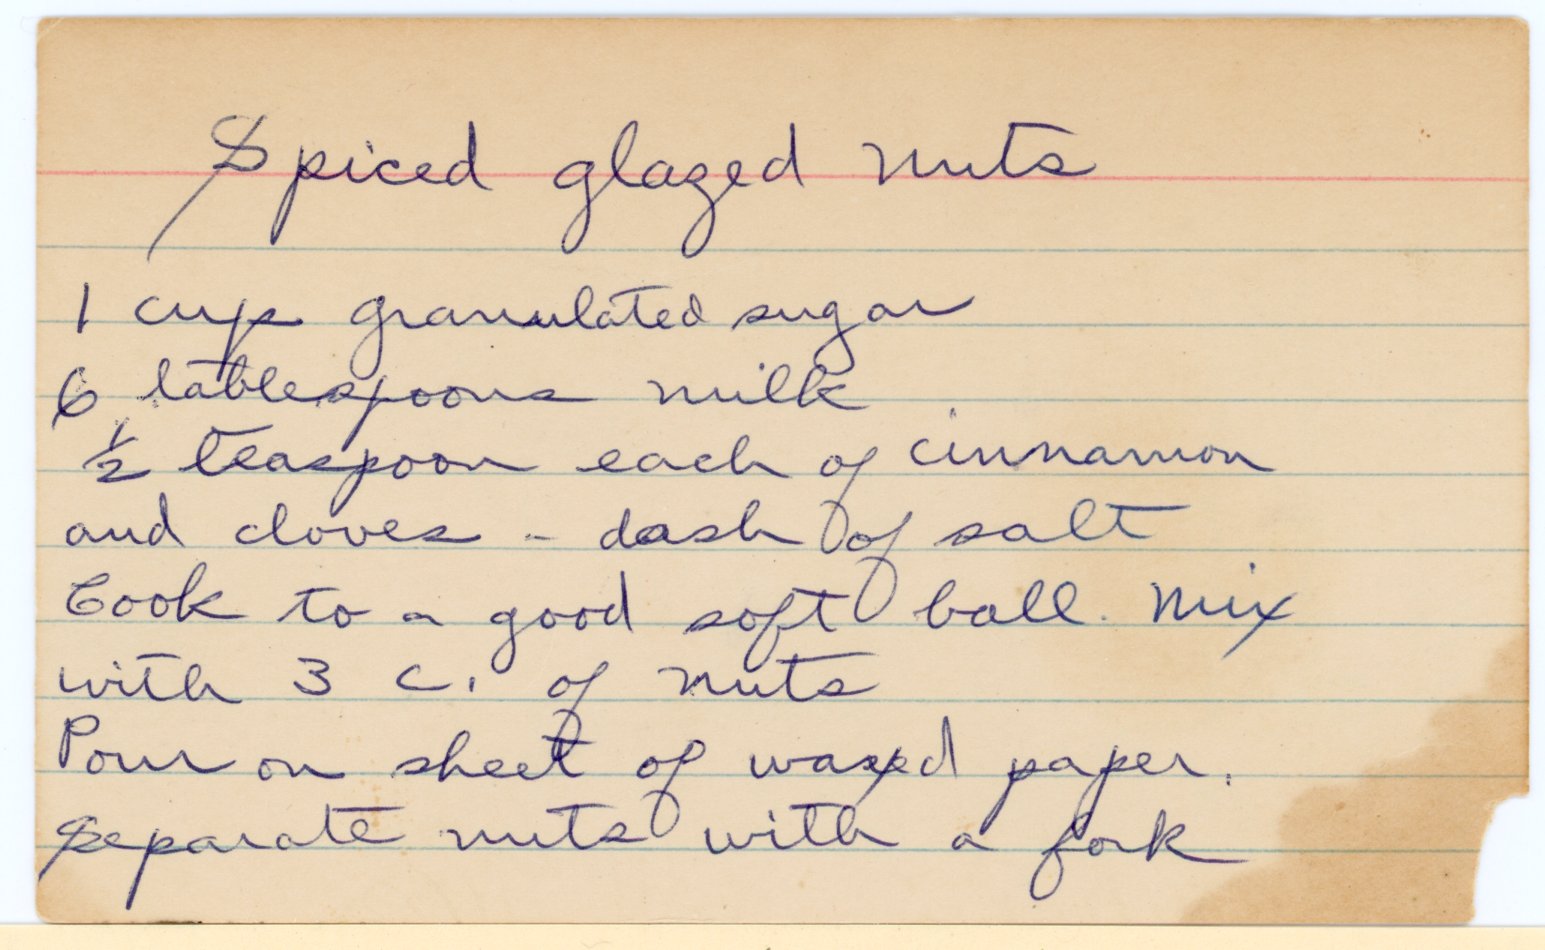 Spiced glazed nuts
1 cup granulated sugar
6 tablespoons milk
1/2 teaspoon each of cinnamon
and cloves - dash of salt
Cook to a good soft ball. Mix
with 3 c. of nuts
Pour on sheet of waxed paper.
Separate nuts with a fork